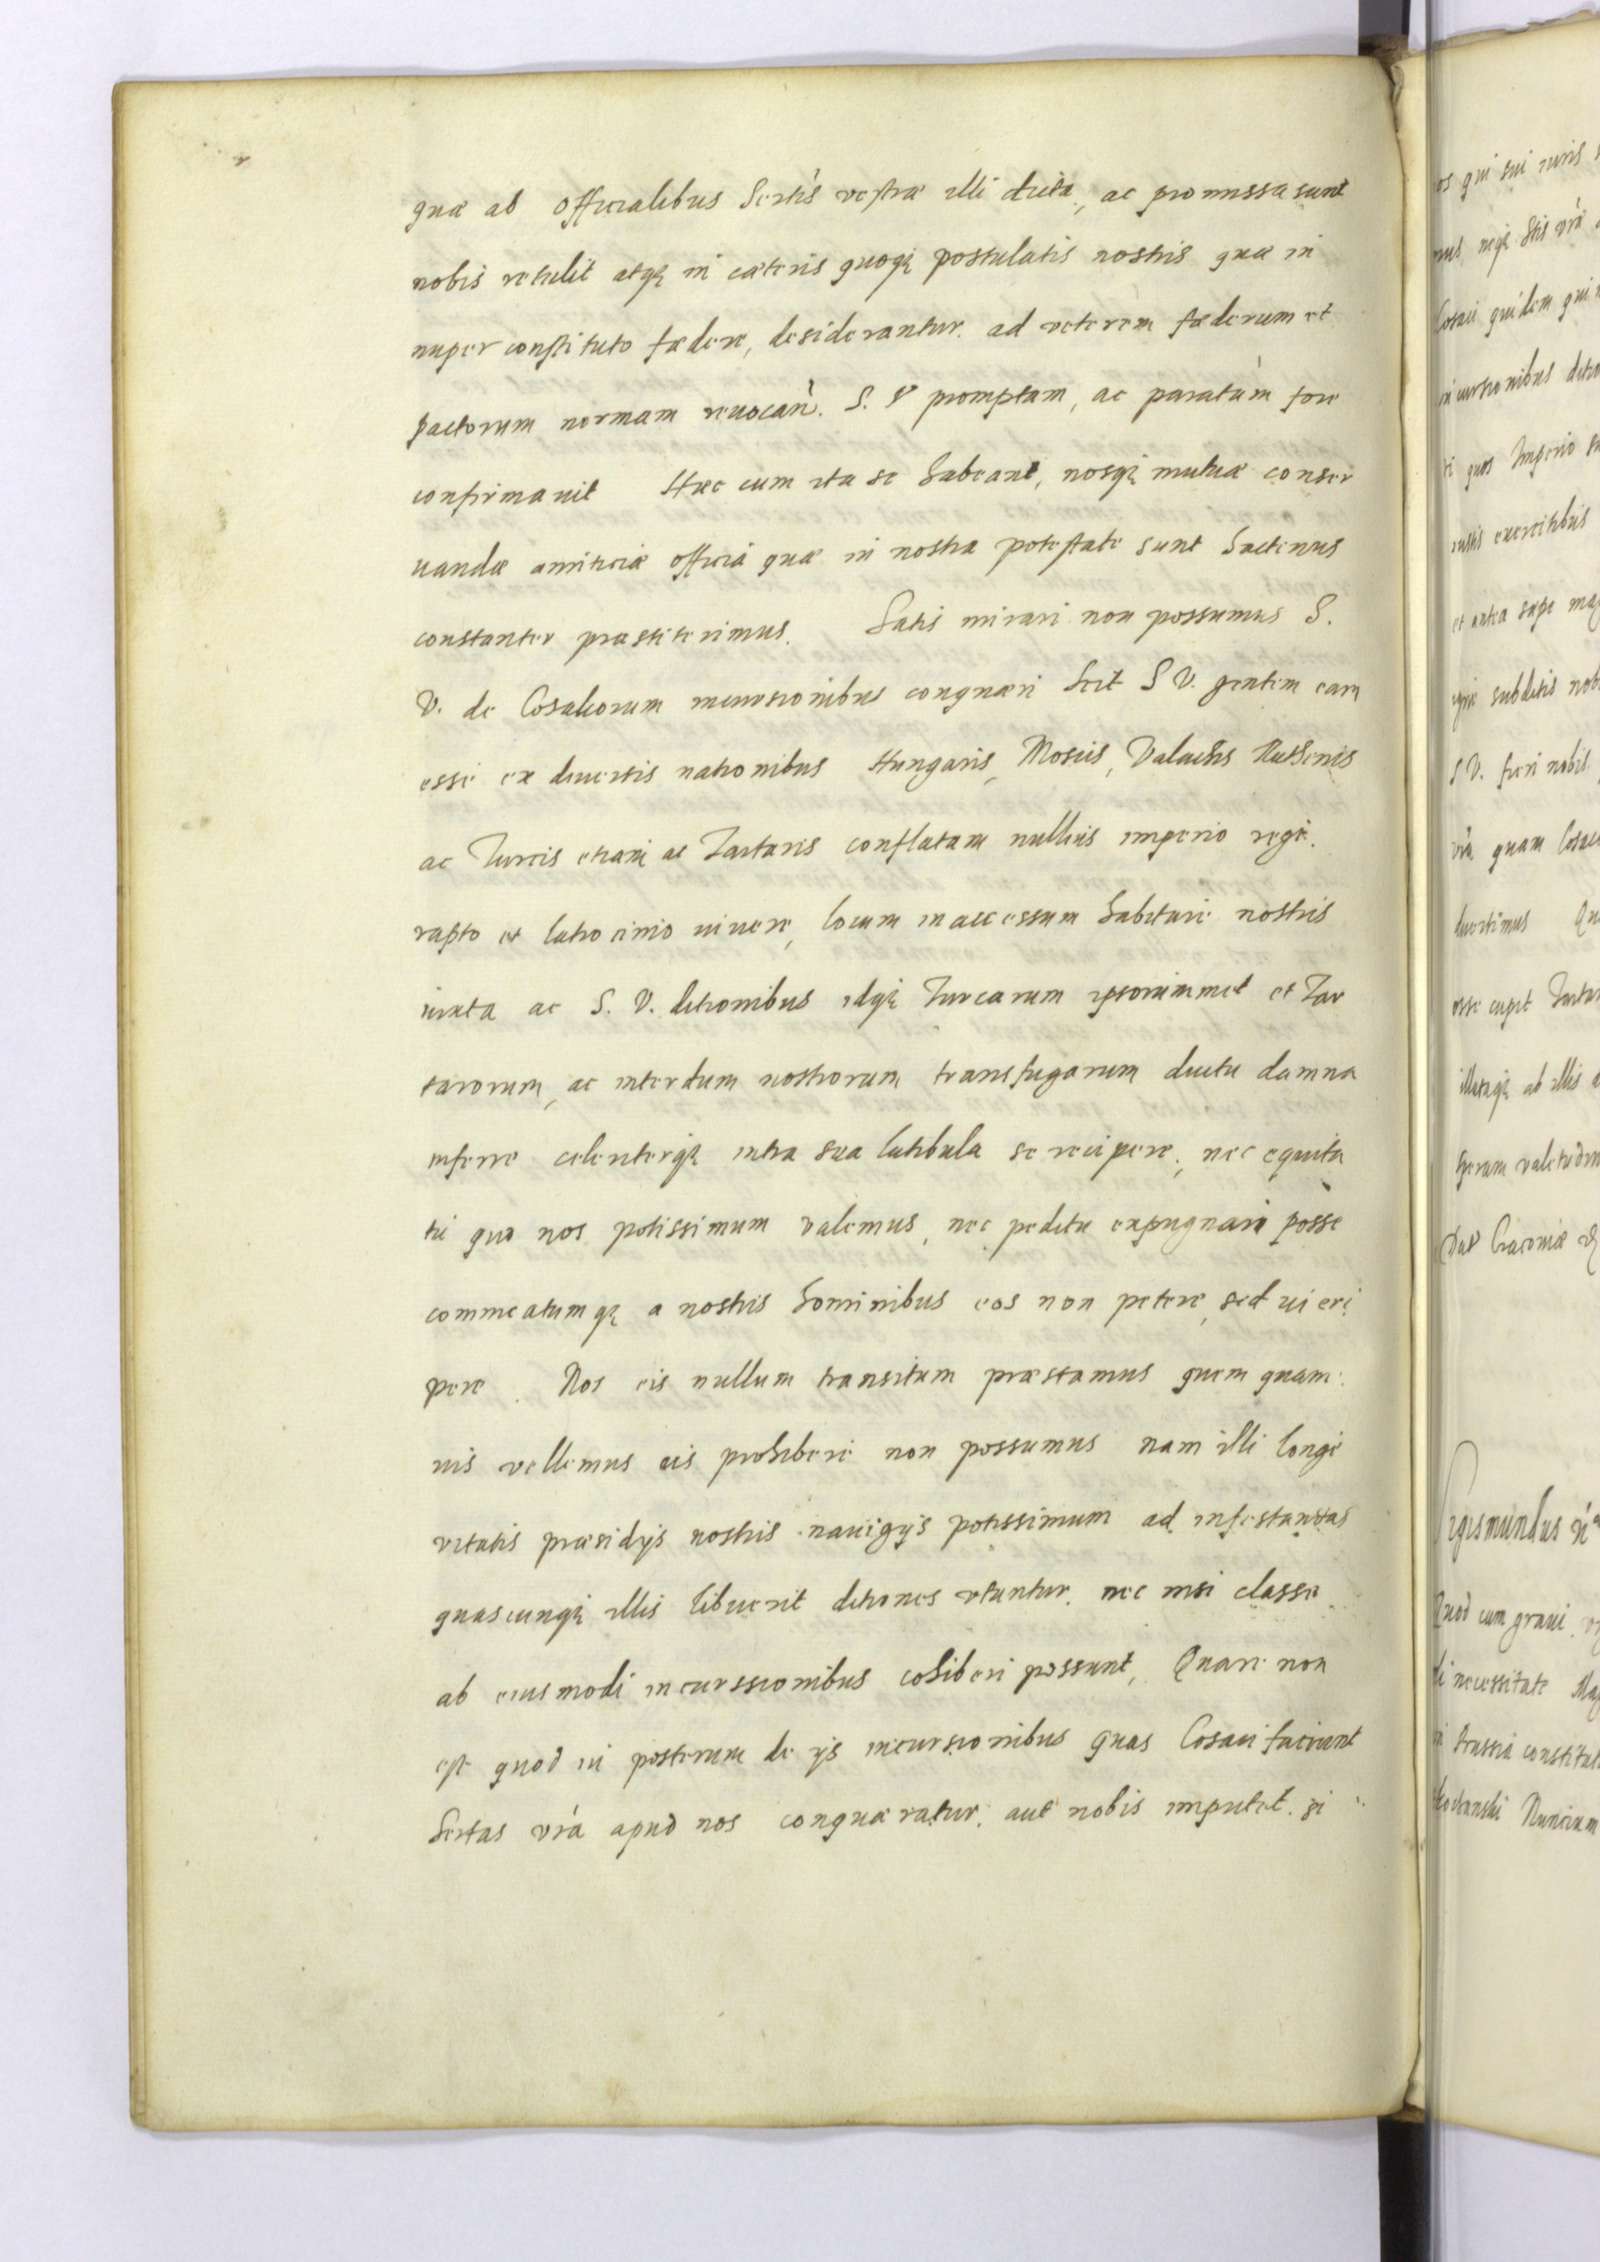 quæ ab officialibus Sertis vestræ illi dicta, ac promissa sunt
nobis retulit atq; in cæteris quoq; postulatis nostris quæ in
nuper constituto fœdere, desiderantur. ad veterem fœderum et
pactorum normam reuocan. S. V promptam, ac paratam fore
confirmauit Hæc cum ita se habeant, nosq; mutuæ conser
uandæ amiticiæ officia quæ in nostra potestate sunt hactenus
constanter præstiterimus. Satis mirari non possumus S.
V. de Cosacorum incursionibus conquæri Scit S V. gentem eam
esse ex diuersis nationibus Hungaris, Moscis, Valachis Ruthenis
ac Turcis etiam ac Tartaris conflatam nullius imperio regi.
rapto et latrocinio uiuere, locum inaccessum habitare nostris
iuxta ac S. V. ditionibus idq; Turcarum ipsorummet et Tar
tarorum, ac interdum nostrorum transfugarum ductu damna
inferre celeriterq; intra sua latibula se recipere, nec equita
tu quo nos potissimum valemus, nec peditu expugnari posse
commeatumq; a nostris hominibus eos non petere, sed ui eri
pere. Nos eis nullum transitum præstamus quem quam
uis vellemus eis prohibere non possumus nam illi longe
vitatis præsidijs nostris nauigijs potissimum ad infestandas
quascunq; illis libuerit ditiones vtuntur. nec nisi classe
ab eiusmodi incurssionibus cohiberi possunt, Quare non
est quod in posterum de ijs incursionibus quas Cosaci faciunt
Sertas vra apud nos conquæratur. aut nobis imputet. si
os qui sui iuris
mus neq; Stis vræ
Cosaci quidem qui
incursionibus
quos Imperio
iustis exercitibus
et antea sæpe
subditis
S V. fieri nobis
vra quam
Qu
esse cupit
illetaq; ab illis
Dat Cracoviæ
Sigismundus
Quod cum graui
necessitate
Prussia
Nuncium